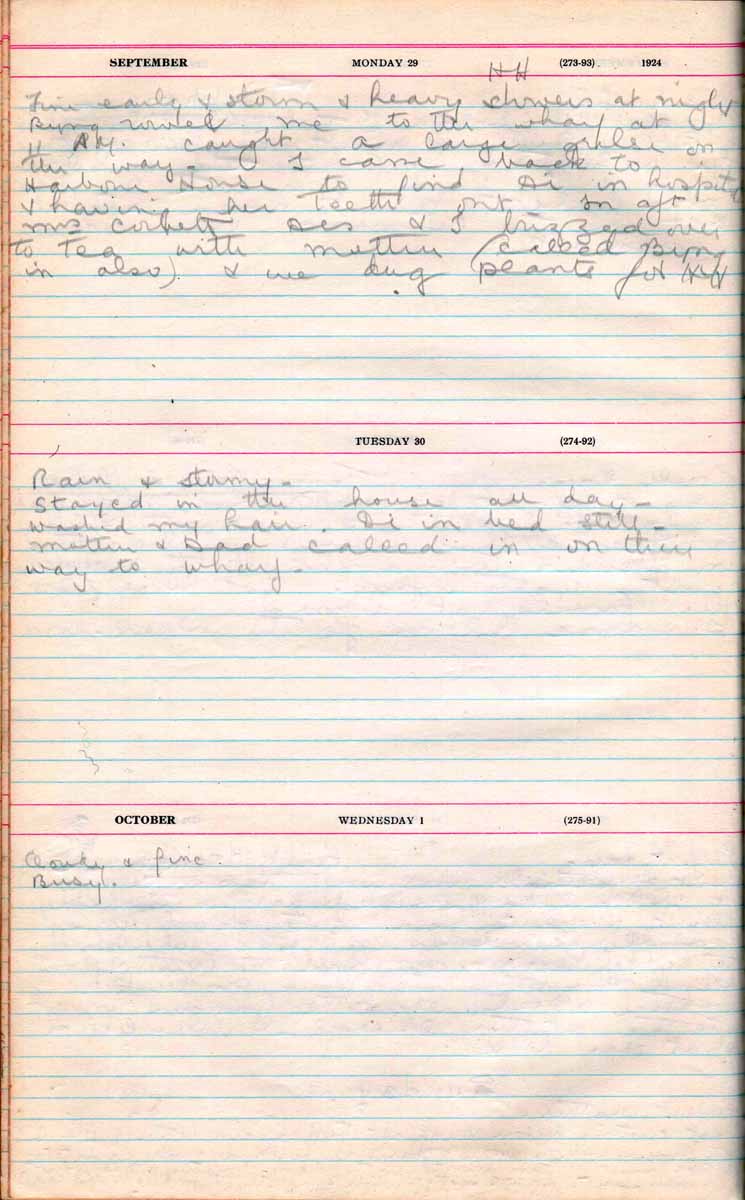 SEPTEMBER MONDAY 29 (273-93) 1924
HH
Fine early & storm & heavy showers at night
Byng rowed me to the wharf at
11 AM. caught a large grilse on
the way - I came back to
Harbour House to find Di in hospital
& having her teeth out. In aft
Mrs Corbett Des & I buzzed over
to tea with mother (called Byng
in also) & we dug plants for HH
TUESDAY 30 (274-92)
Rain & stormy -
Stayed in the house all day -
washed my hair. Di in bed still -
mother & Dad called in on their
way to wharf -
OCTOBER WEDNESDAY 1 (275-91)
Cloudy & fine.
Busy.